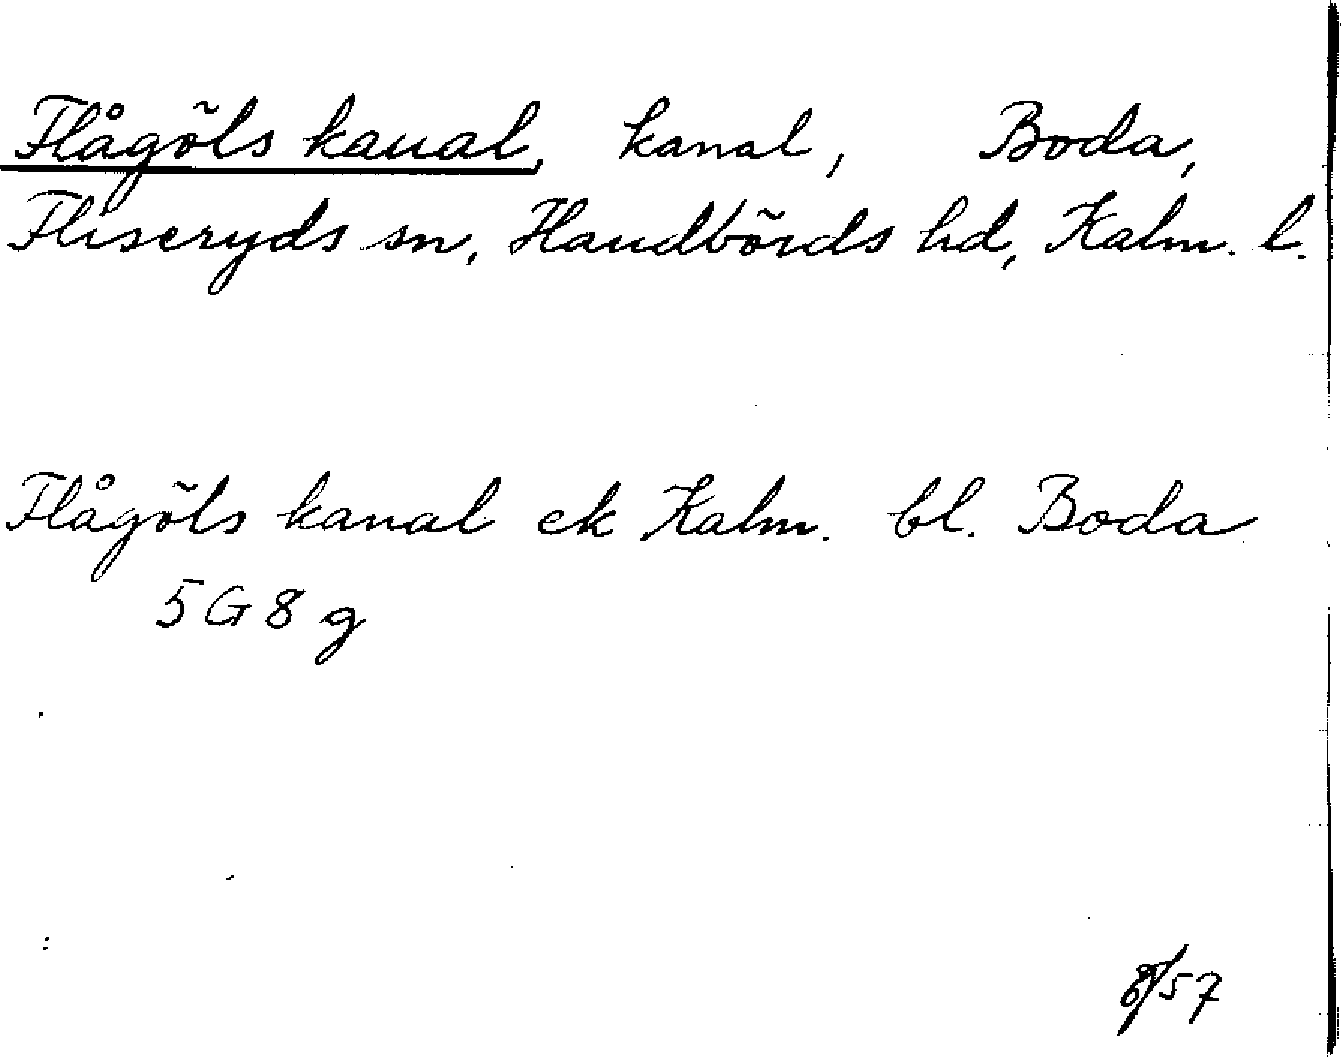 Flågöls kanal, kanal, Boda,
Fliseryds sn, Handbörds hd, Kalm. l.
Flågöls kanal ek Kalm. bl. Boda
5 G 8 g
8/57